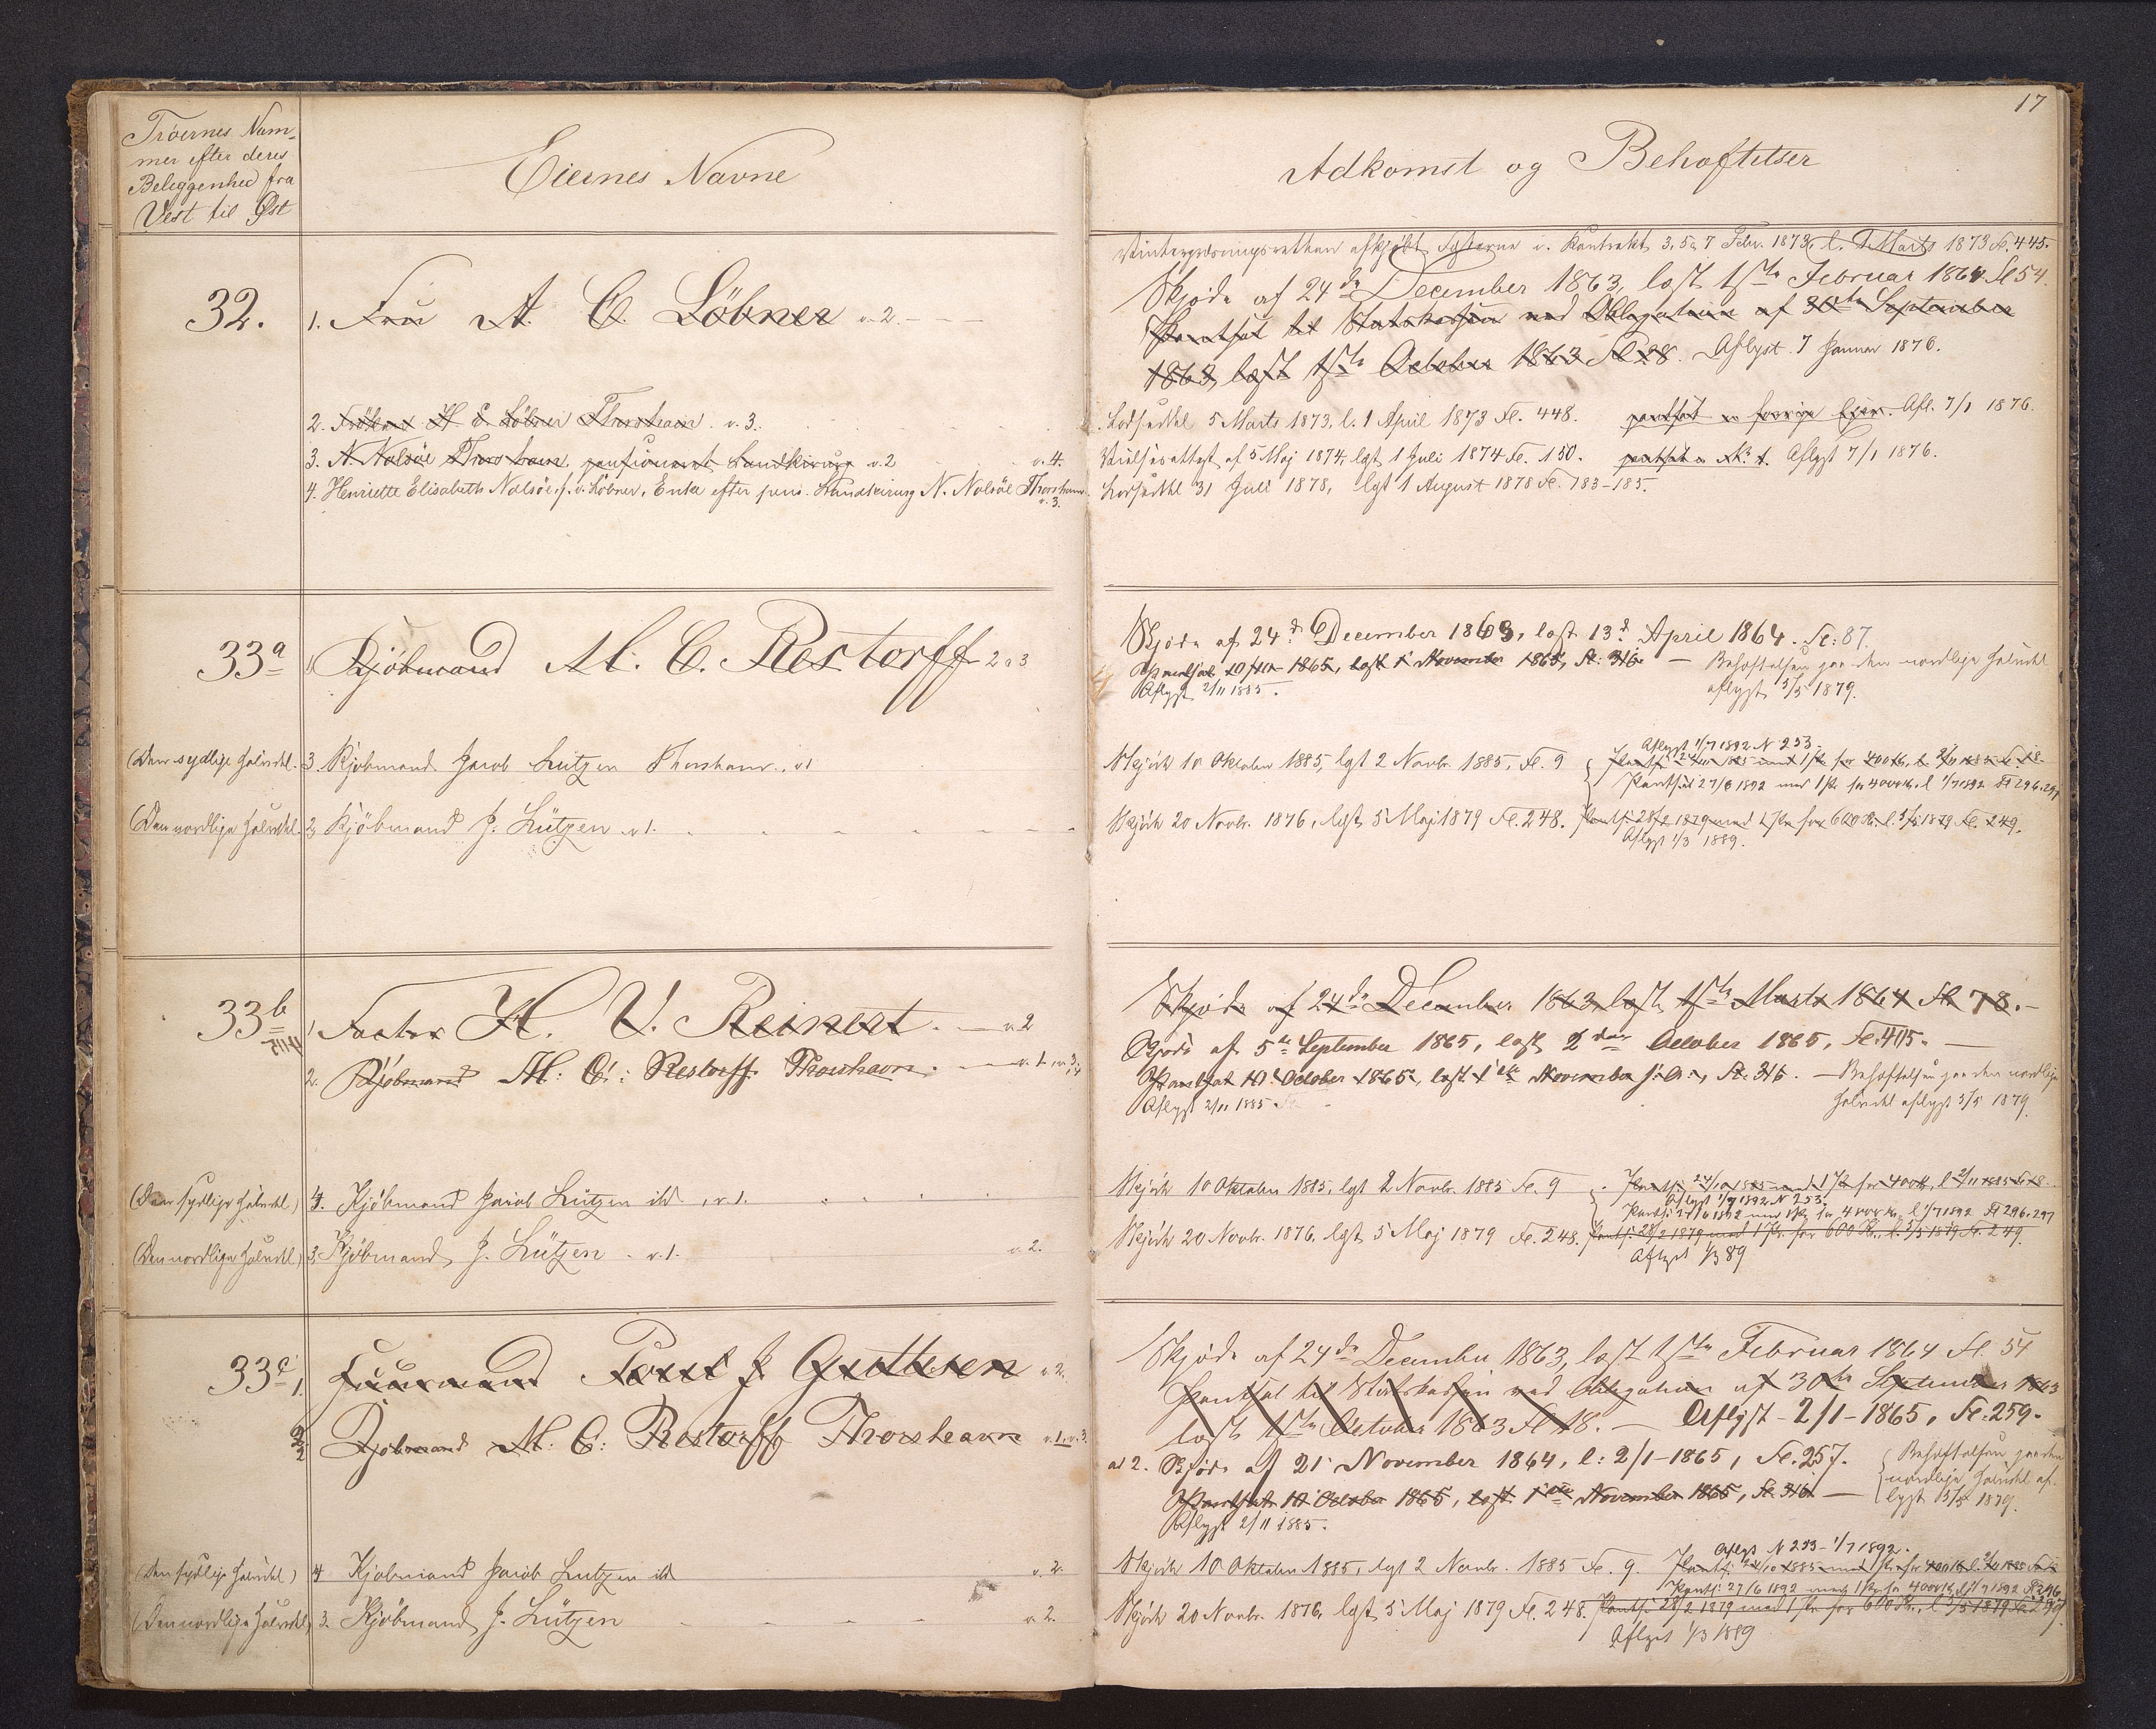 17
Tröernes Num-
mer efter deres
Beliggenhed fra
Vest til Øst
Eiernes Navne
Adkomst og Behæftelser
32.
1. Fru A. C. Löbner v. 2.
2. Fröken H E Löbner Thorshavn. v. 3.
3. N. Nolsöe Thorshavn, pensioneret Landkirurg v. 2 v. 4.
4. Henriette Elisabeth Nolsöe f. Löbner, Enke efter pens. Landkirurg N. Nolsöe Thorshavn
v. 3.
Vintergræsningsretten afkjøbt Fæsterne v. Kontrakt 3, 5 & 7 Febr. 1873, l. 1 Marts 1873 Fl. 445.
Skjøde af 24de December 1863, læst 1ste Februar 1864 Fl 54.
Pantsat til Statskassen ved Obligation af 30te September
1863, læst 1ste October 1863 Fl 18. Aflyst 7 Januar 1876.
Lodseddel 5 Marts 1873, l. 1 April 1873 Fl. 448. pantsat forrige Ejer. Afl. 7/1 1876.
Vielsesattest af 5 Maj 1874, lgst 1 Juli 1874 Fl. 150. pantsat Aflyst 7/1 1876.
Lodseddel 31 Juli 1878, lgst 1 August 1878 Fl. 183-185.
33a
1. Kjöbmand M. C. Restorff 2 v 3
(Den sydlige Halvdel. 3. Kjöbmand Jacob Lützen Thorshavn, v 1
(Den nordlige Halvdel. 2 Kjöbmand J. Lützen v 1.
Skjøde af 24d December 1863, læst 13d April 1864. Fl: 87.
Pantsat 10/10 1865, læst 1 November 1865, Fl: 316. — Behæftelsen paa den nordlige Halvdel
Aflyst 2/11 1885. aflyst 5/5 1879.
Aflyst 1/7 1892 N 253.
Skjöde 10 Oktober 1885, lgst 2 Novbr. 1885, Fl. 9 Pants. 24/10 1885 med 1 Pr. for 400 Kr. l. 2/11 1885 Fl. 18.
Pantsat 27/6 1892 med 1 Pr. for 4000 Kr. l 1/7 1892 Fl 296.297
Skjöde 20 Novbr. 1876, lgst 5 Maj 1879 Fl. 248. Pants. 28/2 1879 med 1 Pr. for 600 Kr. l. 5/5 1879 Fl. 249.
Aflyst 1/3 1889.
33b
1. Factor H. V. Reinert. — v 2
2. Kjöbmand M: C: Restorff Thorshavn. — v. 1. v 3.
(Den sydlige Halvdel) 4. Kjöbmand Jacob Lützen ibd, v. 1.
(Den nordlige Halvdel) 3. Kjöbmand J. Lützen v. 1. v. 2.
Skjøde af 24de December 1863, læst 1ste Marts 1864 Fl 78.
Skjøde af 5te September 1865, læst 2den October 1865, Fl: 405.
Pantsat 10 October 1865, læst 1ste November s. A., Fl. 316. — Behæftelsen paa den nordlige
Aflyst 2/11 1885. Halvdel aflyst 5/5 1879.
Skjöde 10 Oktober 1885, lgst 2 Novbr. 1885 Fl. 9 Pants. 24/10 1885 med 1 Pr. for 400 Kr. l 2/11 1885 Fl 18.
Aflyst 1/7 1892 N 253.
Pants. 27/6 1892 med 1 Pr. for 4000 Kr. l 1/7 1892 Fl 296.297
Skjöde 20 Novbr. 1876, lgst 5 Maj 1879 Fl. 248. Pants. 28/2 1879 med 1 Pr. for 600 Kr. l. 5/5 1879 Fl. 249.
Aflyst 1/3 89
33c
1. Poul J. v. 2.
2. Kjöbmand M: C: Restorff Thorshavn v. 1. v. 3.
(Den sydlige Halvdel) 4 Kjöbmand Jacob Lützen ibd v. 2.
(Den nordlige Halvdel) 3. Kjöbmand J. Lützen v. 2.
Skjøde af 24de December 1863, læst 1ste Februar 1864 Fl. 54
Pantsat til Statskassen ved Obligation af 30te September 1863
læst 1ste October 1863 Fl 18. — Aflyst 2/1-1865, Fl. 259.
ad 2. Skjøde af 21 November 1864, l: 2/1-1865, Fl. 257. Behæftelsen paa den
Pantsat 10 October 1865, læst 1ste November 1865, Fl. 316 — nordlige Halvdel af-
Aflyst 2/11 1885. lyst 5/5 1879.
Aflyst N 253 1/7 1892.
Skjöde 10 Oktober 1885, lgst 2 Novbr. 1885 Fl. 9. Pants. 24/10 1885 med 1 Pr. for 400 Kr. l. 2/11 1885 Fl 18
Pants. 27/6 1892 med 1 Pr. for 4000 Kr. l 1/7 1892 Fl 296.
Skjöde 20 Novbr. 1876, lgst 5 Maj 1879 Fl. 248. Pants. 28/2 1879 med 1 Pr. for 600 Kr., l 5/5 1879 Fl 249.
Aflyst 1/3 1889